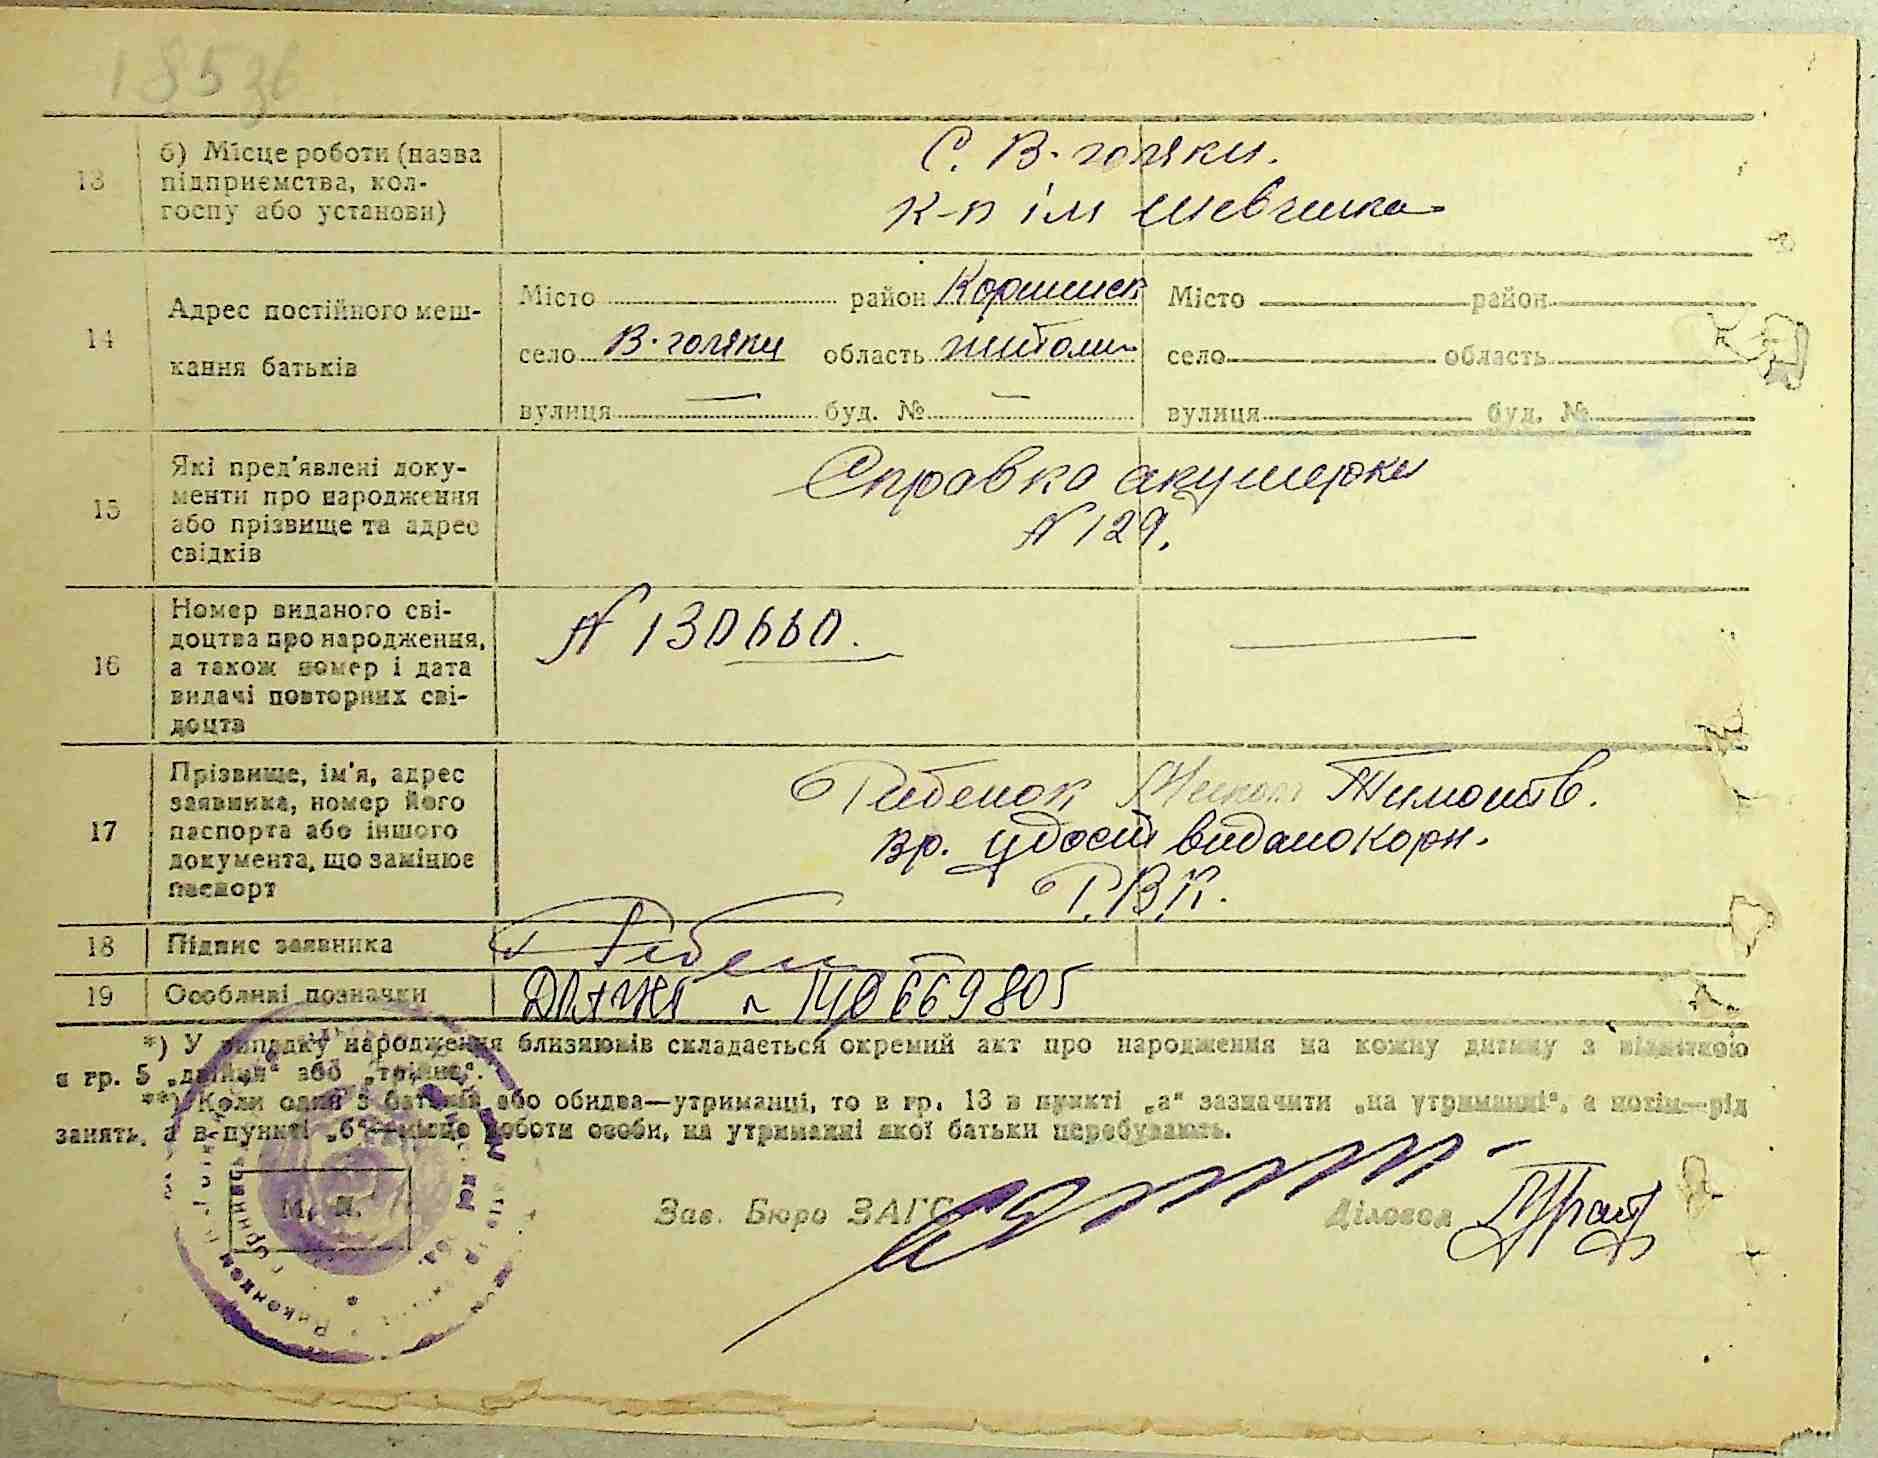 18536
13
б) Місце роботи (назва
підприємства, кол-
госпу або установи)
С. В-голяки.
к-п ім Шевченка
14
Адрес постійного меш-
кання батьків
Місто район Коршинск Місто район
село В-голяки область житоми село область
вулиця — буд. № — вулиця буд. №
15
Які пред'явлені доку-
менти про народження
або прізвище та адрес
свідків
Справка акушерки
N 129.
16
Номер виданого сві-
доцтва про народження,
а також номер і дата
видачі повторних сві-
доцтв
N 130660. —
17
Прізвище, ім'я, адрес
заявника, номер його
паспорта або іншого
документа, що замінює
паспорт
Рибенок Тимоштв.
вр. удост видано корн.
Р.В.К.
18 Підпис заявника
Рибен
19 Особливі позначки
669805
*) У випадку народження близнюків складається окремий акт про народження на кожну дитину з відміткою
в гр. 5 „двійня" або „трійня".
**) Коли один з батьків або обидва—утриманці, то в гр. 13 в пункті „а" зазначити „на утриманні", а потім—рід
занять, а в пункті „б"—місце роботи особи, на утриманні якої батьки перебувають.
М. П.
Зав. Бюро ЗАГС Діловод